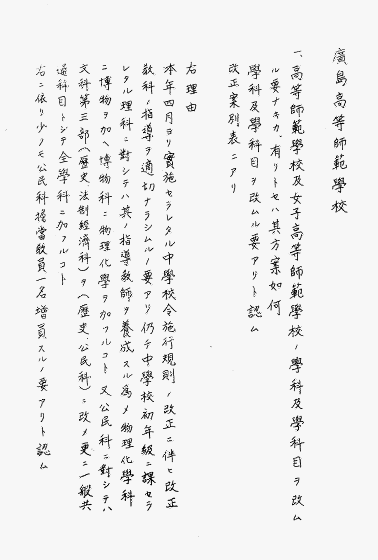 廣島高等師範學校
一、高等師範學校及女子高等師範學校ノ學科及學科目ヲ改ム
ル要ナキカ、有リトセハ其方案如何
學科及學科目ヲ改ムル要アリト認ム
改正案別表ニアリ
右理由
本年四月ヨリ實施セラレタル中學校令施行規則ノ改正ニ伴ヒ改正
敎科ノ指導ヲ適切ナラシムルノ要アリ仍テ中學校初年級ニ課セラ
レタル理科ニ對シテハ其ノ指導敎師ヲ養成スル爲メ物理化學科
ニ博物ヲ加ヘ博物科ニ物理化學ヲ加フルコト又公民科ニ對シテハ
文科第三部(歷史、法制經濟科)ヲ(歷史、公民科)ニ改メ更ニ一般共
通科目トシテ全學科ニ加フルコト
右ニ依リ少クモ公民科擔當敎員一名增員スルノ要アリト認ム